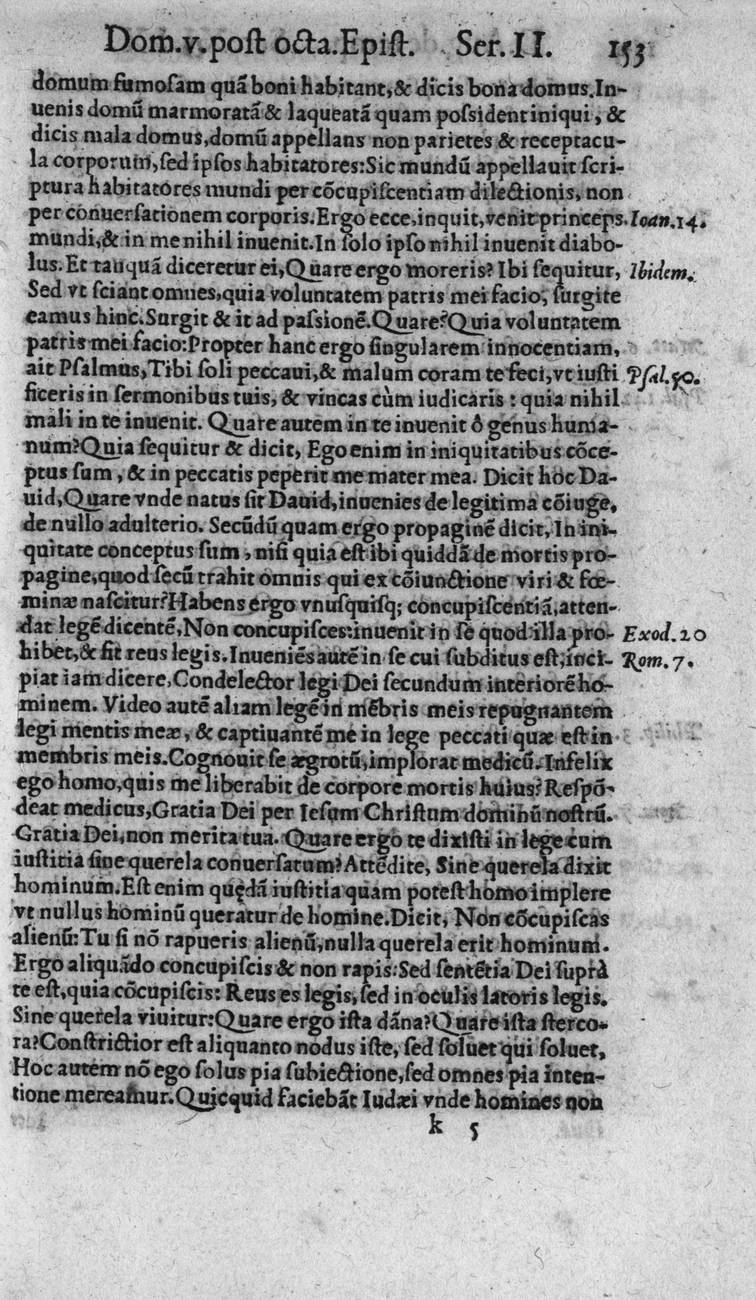 Dom.v.post octa.Epist. Ser.II. 153
domum fumosam quā boni habitant,& dicis bona domus.In-
uenis domū marmoratā & laqueatā quam possident iniqui, &
dicis mala domus,domū appellans non parietes & receptacu-
la corporum,sed ipsos habitatores:Sic mundū appellauit scri-
ptura habitatores mundi per cōcupiscentiam dilectionis, non
per conuersationem corporis.Ergo ecce,inquit,venit princeps. Ioan.14.
mundi,& in me nihil inuenit.In solo ipso nihil inuenit diabo-
lus.Et tanquā diceretur ei,Quare ergo moreris? Ibi sequitur, Ibidem.
Sed vt sciant omnes,quia voluntatem patris mei facio, surgite
eamus hinc.Surgit & it ad passionē.Quare?Quia voluntatem
patris mei facio:Propter hanc ergo singularem innocentiam,
ait Psalmus,Tibi soli peccaui,& malum coram te feci,vt iusti Psal.50.
ficeris in sermonibus tuis, & vincas cùm iudicaris : quia nihil
mali in te inuenit. Quare autem in te inuenit ô genus huma-
num?Quia sequitur & dicit, Ego enim in iniquitatibus cōce-
ptus sum, & in peccatis peperit me mater mea. Dicit hoc Da-
uid,Quare vnde natus sit Dauid,inuenies de legitima cōiuge,
de nullo adulterio. Secūdū quam ergo propaginē dicit, In ini-
quitate conceptus sum, nisi quia est ibi quiddā de mortis pro-
pagine,quod secū trahit omnis qui ex cōiunctione viri & fœ-
minæ nascitur?Habens ergo vnusquisq; concupiscentiā,atten-
dat legē dicentē,Non concupisces:inuenit in se quod illa pro- Exod.20
hibet,& fit reus legis.Inueniēs autē in se cui subditus est,inci- Rom.7.
piat iam dicere,Condelector legi Dei secundum interiorē ho-
minem. Video autē aliam legē in mēbris meis repugnantem
legi mentis meæ, & captiuantē me in lege peccati quæ est in
membris meis.Cognouit se ægrotū,implorat medicū.Infelix
ego homo,quis me liberabit de corpore mortis huius?Respō-
deat medicus,Gratia Dei per Iesum Christum dominū nostrū.
Gratia Dei,non merita tua. Quare ergo te dixisti in lege cum
iustitia sine querela conuersatum?Attēdite, Sine querela dixit
hominum.Est enim quędā iustitia quam potest homo implere
vt nullus hominū queratur de homine.Dicit, Non cōcupiscas
alienū:Tu si nō rapueris alienū,nulla querela erit hominum.
Ergo aliquādo concupiscis & non rapis:Sed sentētia Dei suprà
te est,quia cōcupiscis: Reus es legis,sed in oculis latoris legis.
Sine querela viuitur:Quare ergo ista dāna?Quare ista sterco-
ra?Constrictior est aliquanto nodus iste, sed soluet qui soluet,
Hoc autem nō ego solus pia subiectione,sed omnes pia inten-
tione mereamur.Quicquid faciebāt Iudæi vnde homines non
k 5